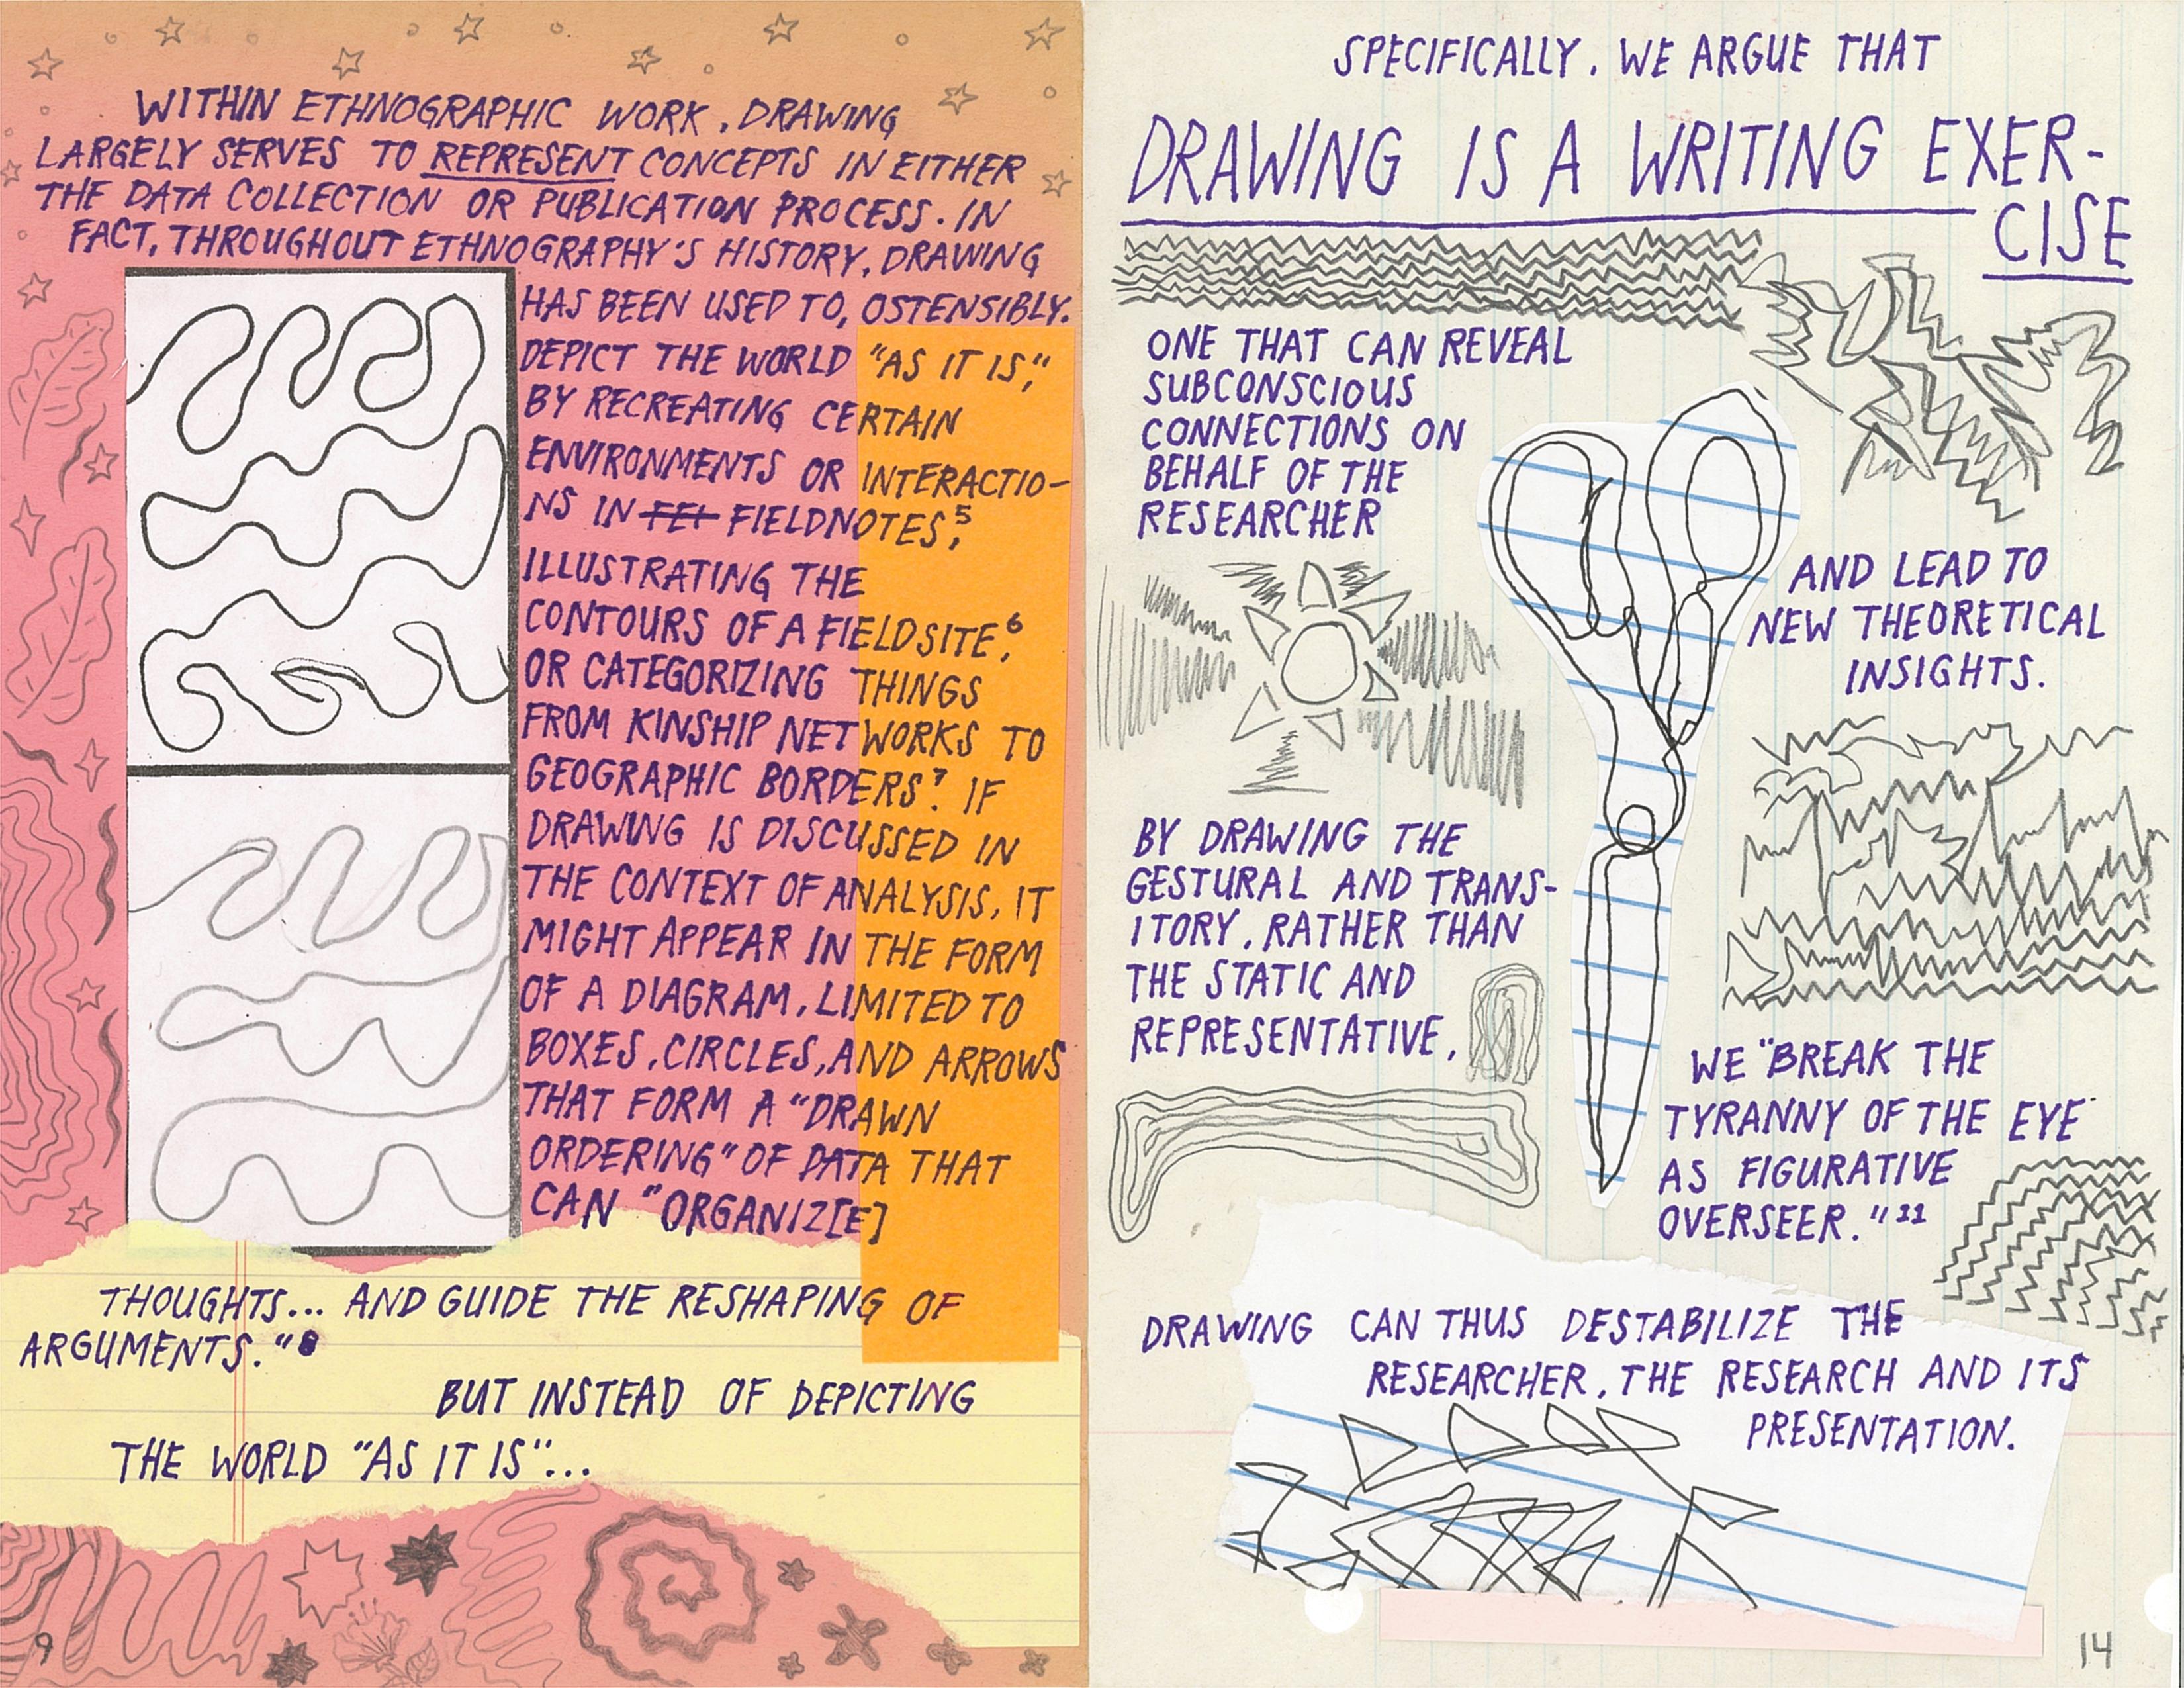 WITHIN ETHNOGRAPHIC WORK, DRAWING
LARGELY SERVES TO REPRESENT CONCEPTS IN EITHER
THE DATA COLLECTION OR PUBLICATION PROCESS. IN
FACT, THROUGHOUT ETHNOGRAPHY'S HISTORY, DRAWING
HAS BEEN USED TO, OSTENSIBLY,
DEPICT THE WORLD "AS IT IS",
BY RECREATING CERTAIN
ENVIRONMENTS OR INTERACTIO-
NS IN FEI FIELDNOTES,⁵
ILLUSTRATING THE
CONTOURS OF A FIELDSITE,⁶
OR CATEGORIZING THINGS
FROM KINSHIP NETWORKS TO
GEOGRAPHIC BORDERS.⁷ IF
DRAWING IS DISCUSSED IN
THE CONTEXT OF ANALYSIS, IT
MIGHT APPEAR IN THE FORM
OF A DIAGRAM, LIMITED TO
BOXES, CIRCLES, AND ARROWS
THAT FORM A "DRAWN
ORDERING" OF DATA THAT
CAN "ORGANIZ[E]
THOUGHTS... AND GUIDE THE RESHAPING OF
ARGUMENTS."⁸
BUT INSTEAD OF DEPICTING
THE WORLD "AS IT IS"...
9
SPECIFICALLY, WE ARGUE THAT
DRAWING IS A WRITING EXER-
CISE
ONE THAT CAN REVEAL
SUBCONSCIOUS
CONNECTIONS ON
BEHALF OF THE
RESEARCHER
AND LEAD TO
NEW THEORETICAL
INSIGHTS.
BY DRAWING THE
GESTURAL AND TRANS-
ITORY, RATHER THAN
THE STATIC AND
REPRESENTATIVE,
WE "BREAK THE
TYRANNY OF THE EYE
AS FIGURATIVE
OVERSEER."¹¹
DRAWING CAN THUS DESTABILIZE THE
RESEARCHER, THE RESEARCH AND ITS
PRESENTATION.
14